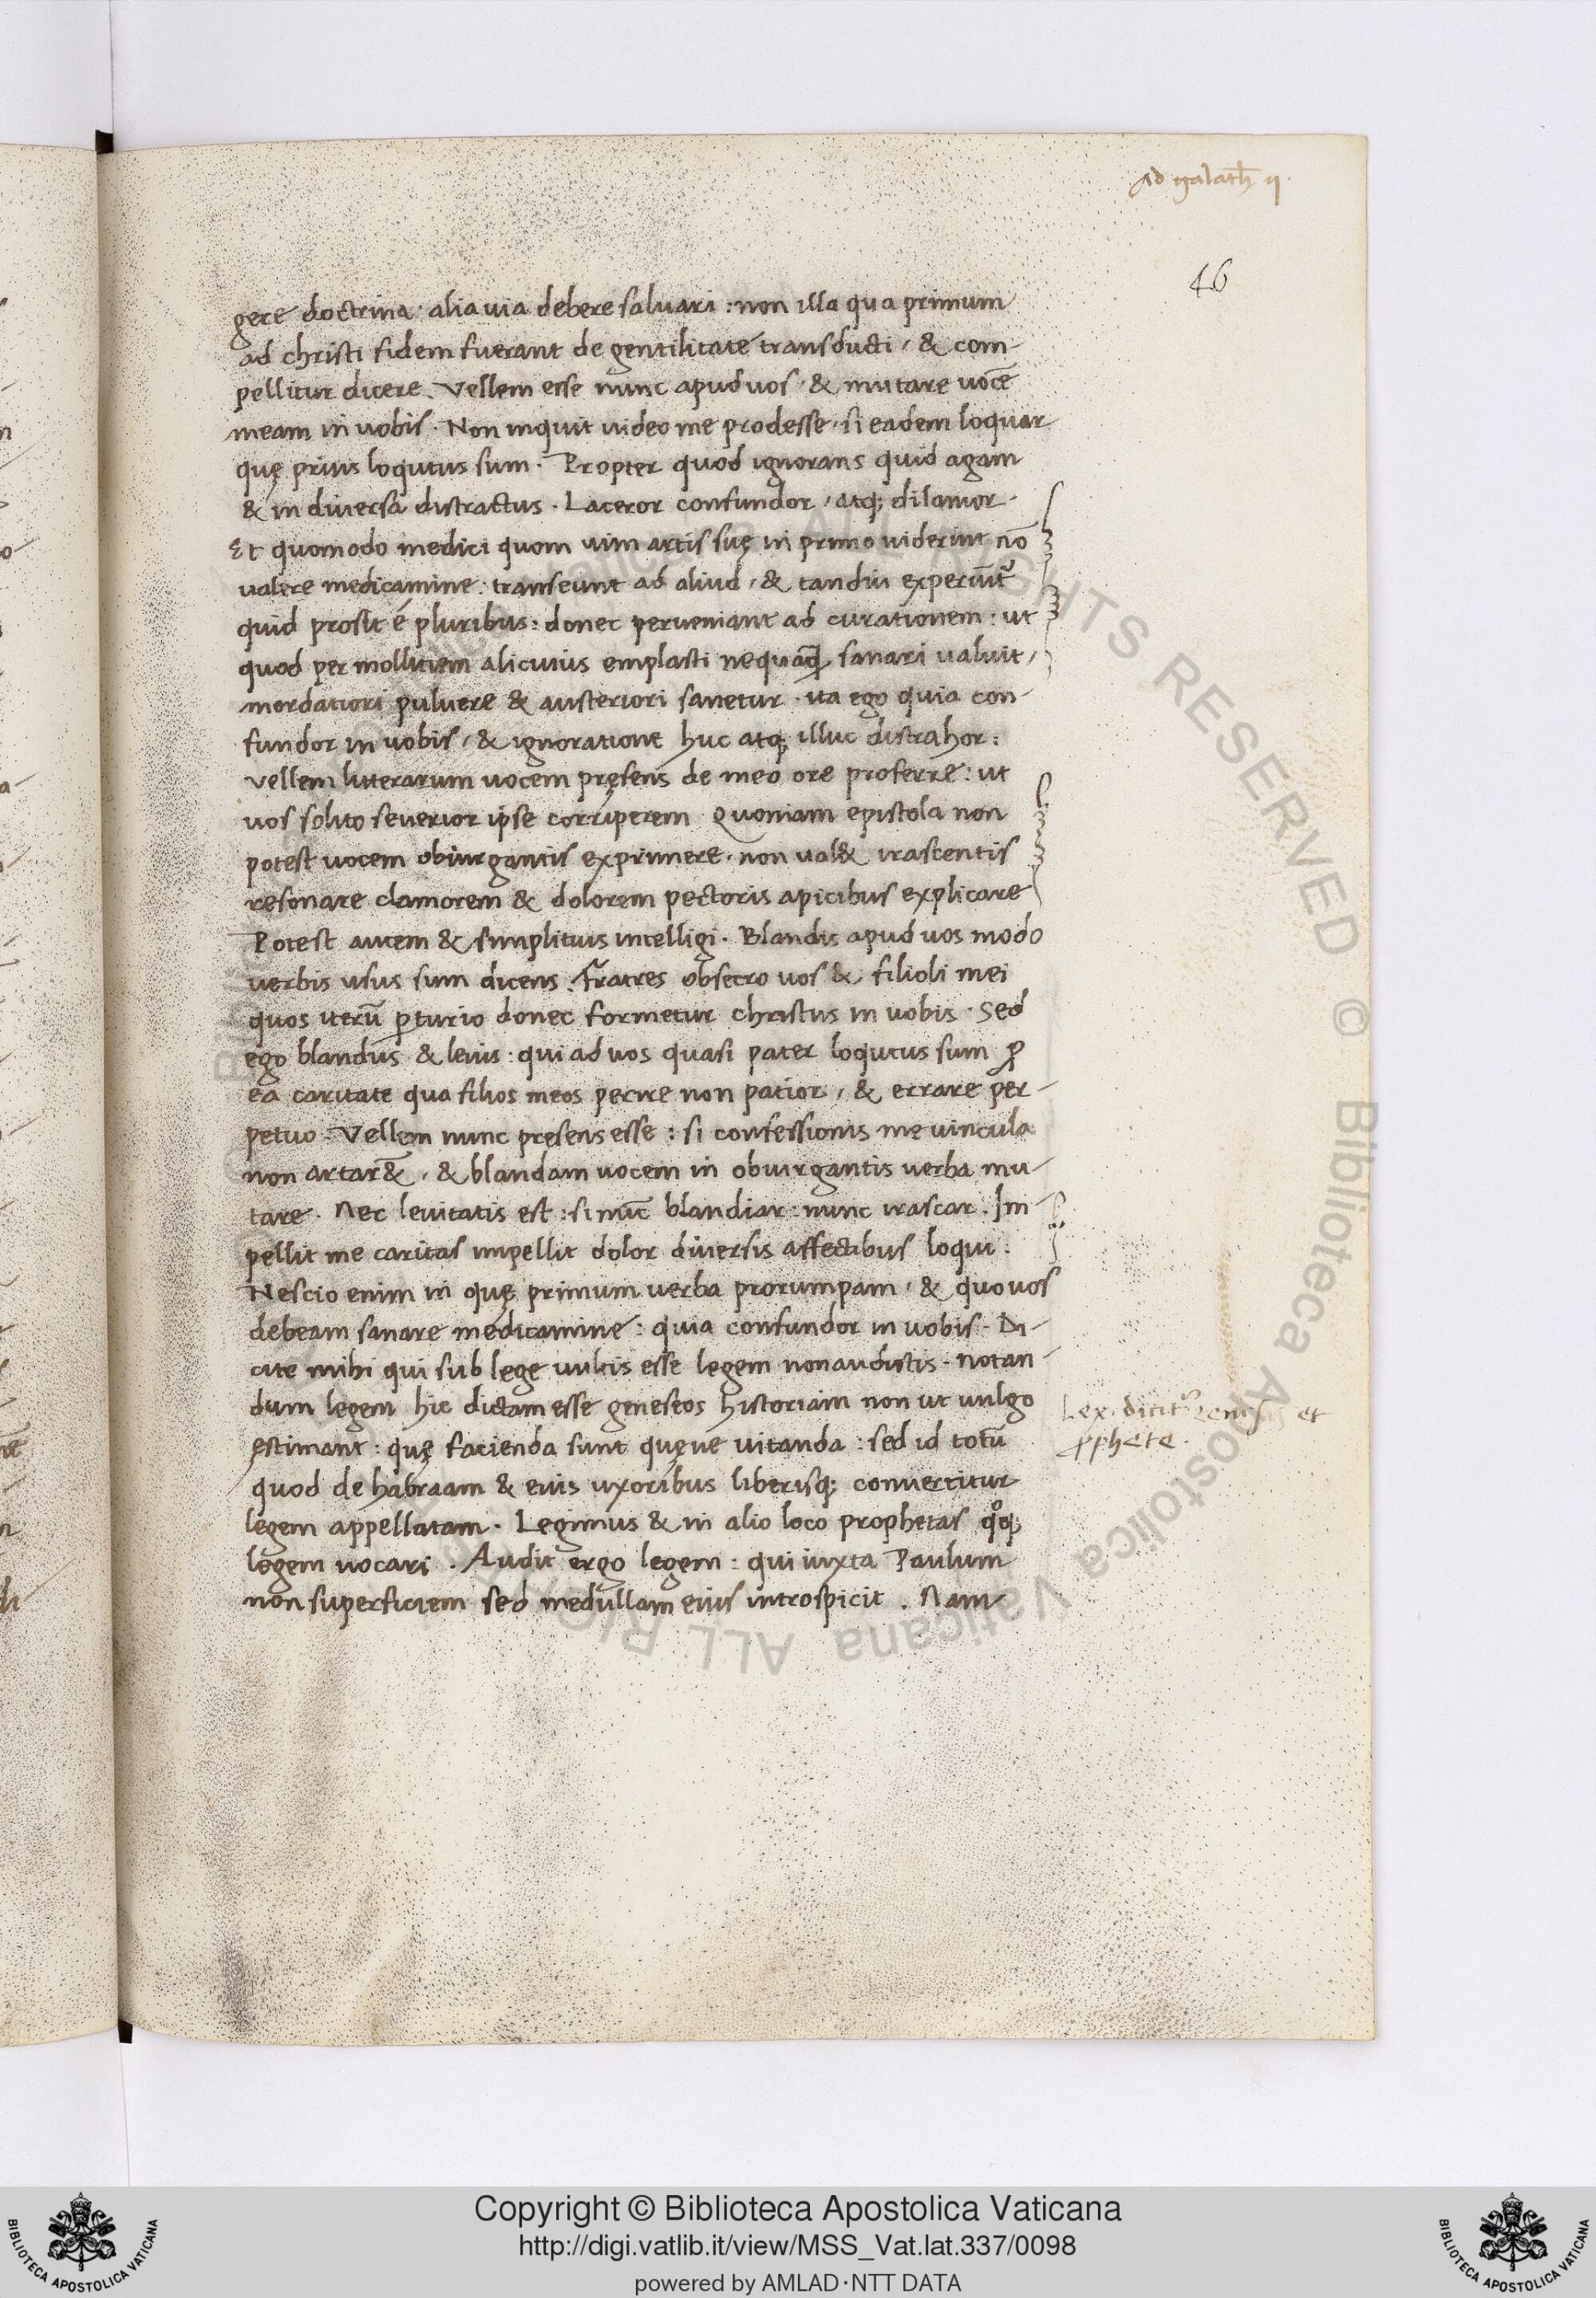 Ad galath̄ ij.
46
gere doctrina: alia uia debere saluari: non illa qua primum
ad christi fidem fuerant de gentilitate transducti, & com-
pellitur dicere. Vellem esse nunc apud uos, & mutare uocē
meam in uobis. Non inquit uideo me prodesse, si eadem loquar
quę prius loqutus sum. Propter quod ignorans quid agam
& in diuersa distractus. Laceror confundor, atq; dilanior.
Et quomodo medici quom uim artis suę in primo uiderint nō
valere medicamine: transeunt ad aliud, & tandiu experiūt᷑
quid prosit é pluribus: donec perueniant ad curationem: ut
quod per mollitiem alicuius emplasti nequaq̄ sanari valuit,
mordatiori puluere & austeriori sanetur. ita ego quia con-
fundor in uobis, & ignoratione huc atq; illuc distrahor:
vellem litterarum uocem pręsens de meo ore proferre: ut
uos solito seuerior ipse corriperem Quoniam epistola non
potest uocem obiurgantis exprimere. non ual& irascentis
resonare clamorem & dolorem pectoris apicibus explicare
Potest autem & simplitius intelligi. Blandis apud uos modo
uerbis usus sum dicens. Fratres obsecro uos & filioli mei
quos iterū ꝑturio donec formetur christus in uobis. Sed
ego blandus & leuis: qui ad uos quasi pater loqutus sum ꝓ
ea caritate qua filios meos perire non patior, & errare per-
petuo. Vellem nunc pręsens esse: si confessionis me uincula
non artar&, & blandam uocem in obiurgantis uerba mu-
tare. Nec leuitatis est: si nūc blandiar: nunc irascar. Im-
pellit me caritas impellit dolor diuersis affectibus loqui:
Nescio enim in quę primum uerba prorumpam, & quo uos
debeam sanare medicamine: quia confundor in uobis. Di-
cite mihi qui sub lege uultis esse legem non audistis. Notan-
dum legem hic dictam esse geneseos historiam non ut uulgo
ęstimant: quę facienda sunt quęue uitanda: sed id totū
quod de habraam & eius uxoribus liberisq; conuertitur
legem appellatam. Legimus & in alio loco prophetas qͦq;
legem uocari. Audit ergo legem: qui iuxta Paulum
non superficiem sed medullam eius introspicit. Nam
Lex. dicit᷑ Genesis et
ꝓphete.
Copyright © Biblioteca Apostolica Vaticana
http://digi.vatlib.it/view/MSS_Vat.lat.337/0098
powered by AMLAD·NTT DATA
BIBLIOTECA APOSTOLICA VATICANA
BIBLIOTECA APOSTOLICA VATICANA